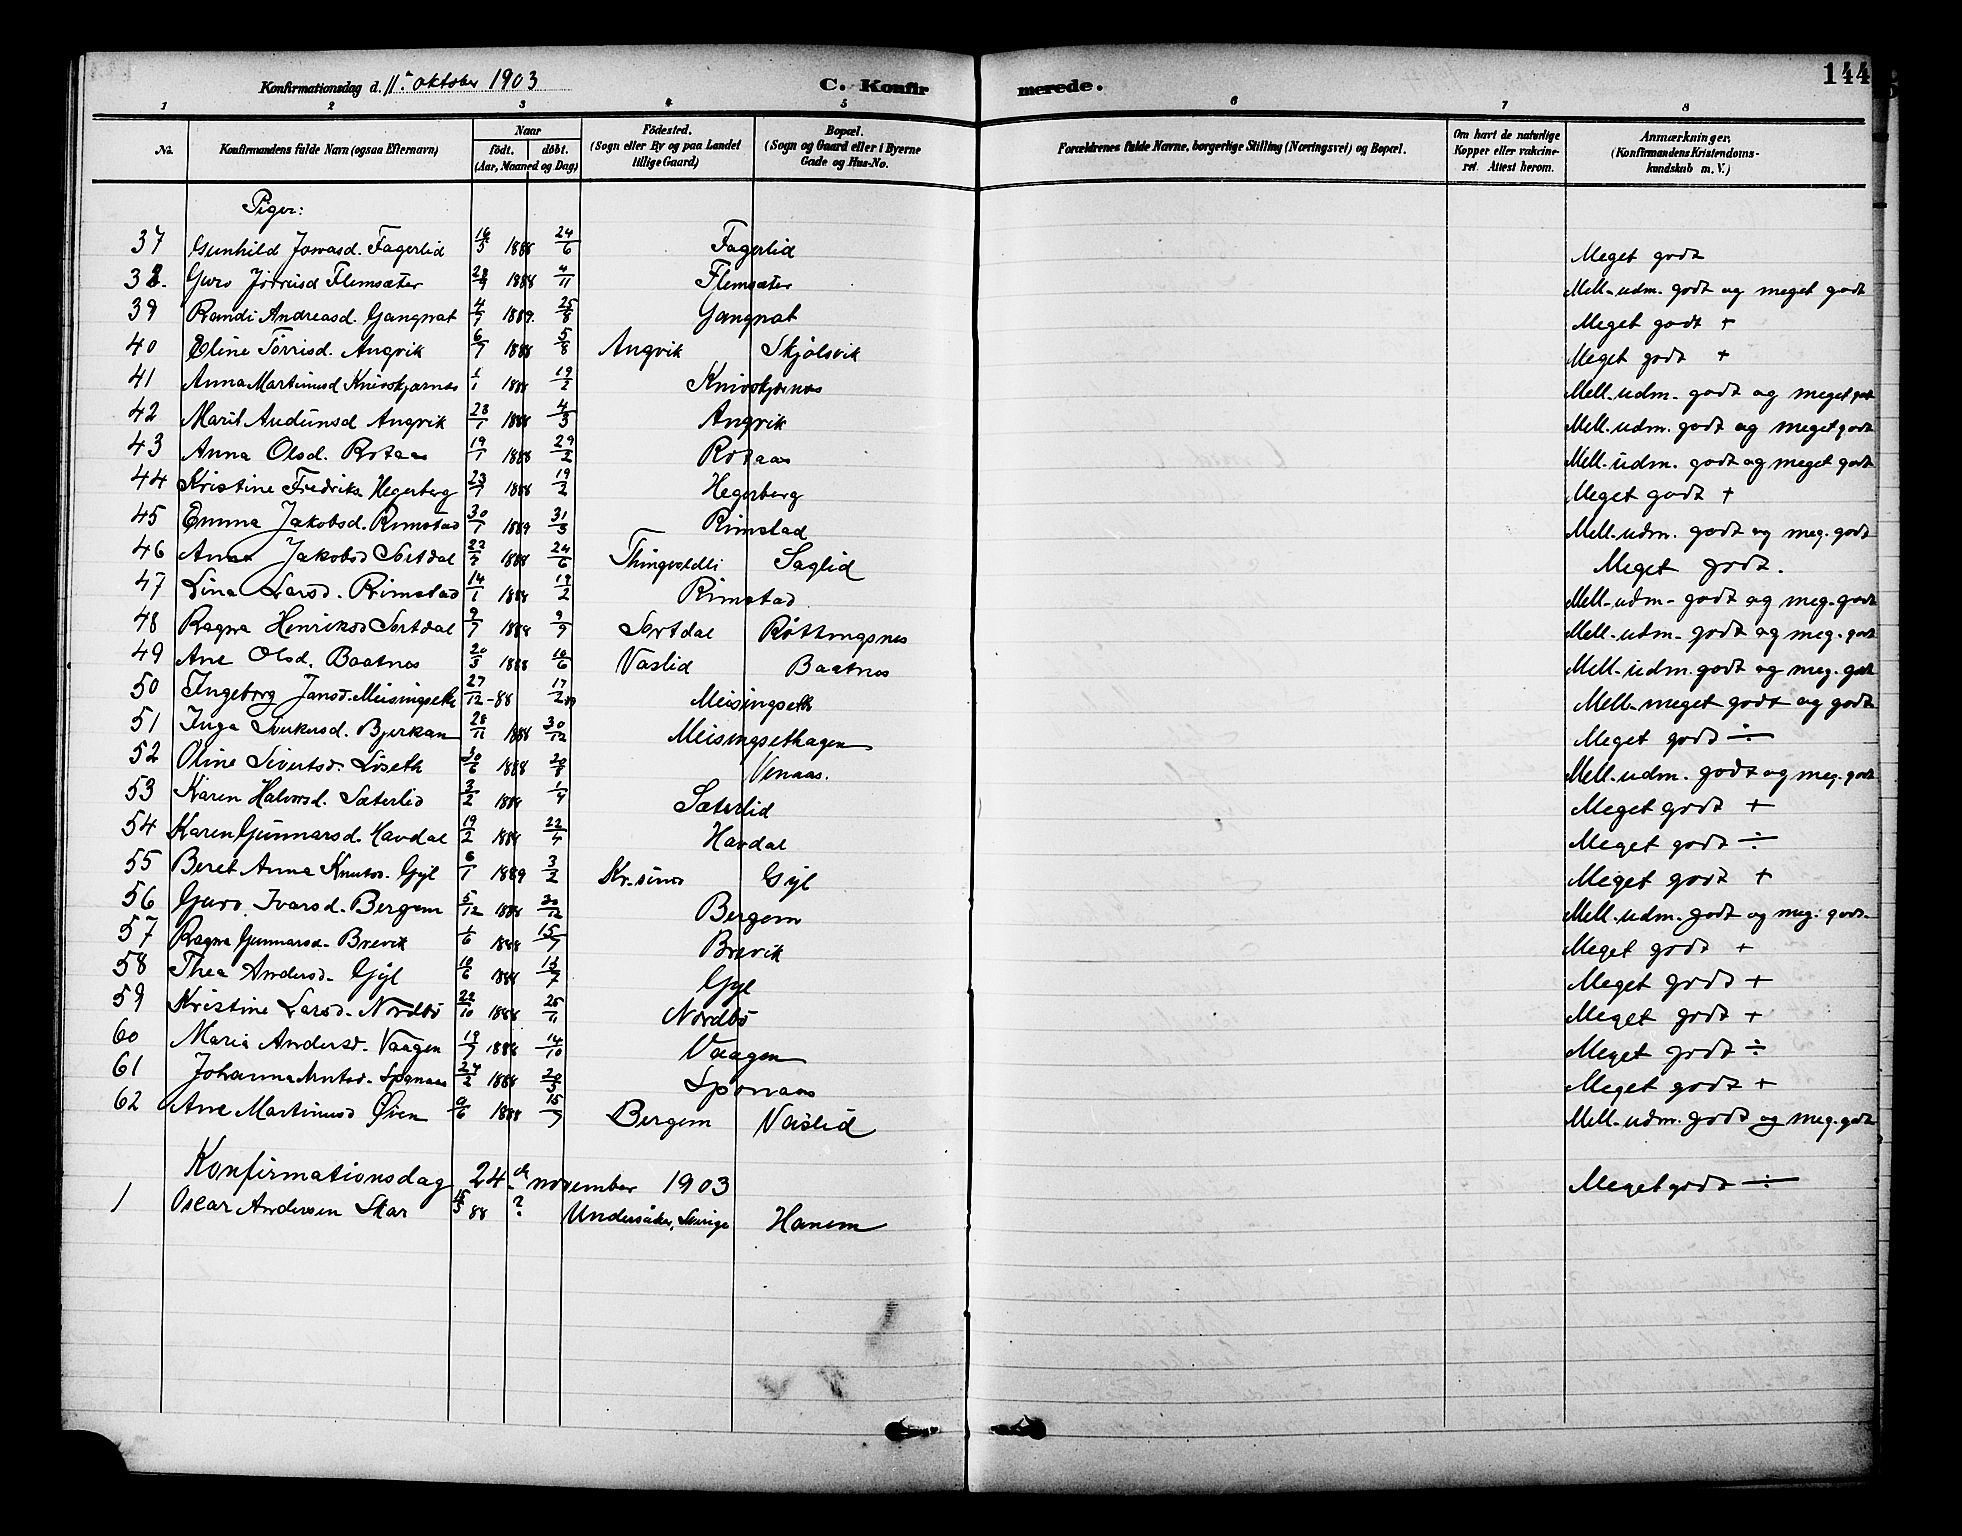 144
Konfirmationsdag d. 11. oktober 1903 C. Konfirmerede.
1 2 3 4 5 6 7 8
No. Konfirmandens fulde Navn (ogsaa Efternavn) Naar født. døbt. (Aar, Maaned og Dag) Födested. (Sogn eller By og paa Landet tillige Gaard) Bopæl. (Sogn og Gaard eller i Byerne Gade og Hus-No. Forældrenes fulde Navne, borgerlige Stilling (Næringsvei) og Bopæl. Om havt de naturlige Kopper eller vakcineret. Attest herom. Anmærkninger, (Konfirmandens Kristendomskundskab m. V.)
Piger:
37 Gunhild Jonasd. Fagerlid 16/5 1888 24/6 Fagerlid Meget godt
38. Guro Flemsæter 28/9 1888 4/11 Flemsæter Mell. udm. godt og meget godt
39 Randi Andreasd. Gangnat 4/7 1889. 25/8 Gangnat Meget godt +
40 Eline Torrisd. Angvik 6/7 1888 5/8 Angvik Skjølsvik Meget godt +
41 Anna Martinusd Knivskjærnes 1/1 1888 19/2 Knivskjærnes Mell. udm. godt og meget godt
42 Marit Audunsd Angvik 28/1 1888 4/3 Angvik Mell. udm. godt og meget godt
43 Anna Olsd. Rotaas 19/1 1888 29/2 Rotaas Mell. udm. godt og meget godt
44 Kristine Fredrika Hegerberg 23/1 1888 19/2 Hegerberg Meget godt +
45 Emma Jakobsd. Rimstad 30/1 1889 31/3 Rimstad Mell. udm. godt og meg. godt
46 Anna Jakobsd Sortdal 22/5 1888 24/6 Saglid Meget godt.
47 Lina Larsd. Rimstad 14/1 1888 19/2 Rimstad Mell. udm. godt og meg. godt
48 Ragna Henriksd Sortdal 9/7 1888 9/9 Sortdal Røttingsnes Mell. udm. godt og meg. godt
49 Ane Olsd. Baatnes 20/5 1888 10/6 Vaslid Baatnes Mell. udm. godt og meg. godt
50 Ingeborg Jansd. Meisingseth 27/12 -88 17/2 89 Meisingseth Mell. meget godt og godt
51 Inga Sivertsd. Bjerkan 28/11 1888 30/12 Meisingsethagen Meget godt ÷
52 Oline Sivertsd. Løseth 30/6 1888 Venaas. Mell. udm. godt og meg. godt
53 Karen Halvorsd. Sæterlid 3/2 1888 1/4 Sæterlid Meget godt +
54 Karen Gunnarsd. Havdal 19/2 1888 22/4 Havdal Meget godt ÷
55 Beret Anna Knutsd. Gyl 6/1 1889 3/2 Kr.sund Gyl Meget godt +
56 Guro Ivarsd. Bergem 5/12 1888 30/12 Bergem Mell. udm. godt og meg. godt.
57 Ragna Gunnarsd. Brevik 1/6 1888 15/7 Brevik Meget godt +
58 Thea Andersd. Gyl 10/6 1888 15/7 Gyl Meget godt +
59 Kristine Larsd. Nordbø 22/10 1888 25/11 Nordbø Meget godt +
60 Maria Andersd. Vaagen 19/7 1888 14/10 Vaagen Meget godt ÷
61 Johanna Arntsd. Sponaas 24/2 1888 20/5 Sponaas Meget godt +
62 Ane Martinusd Øien 9/6 1888 15/7 Bergem Vaslid Mell. udm. godt og meg. godt
Konfirmationsdag 24. de november 1903
1 Oscar Andersen Skar 15/5 88 ? Undersåker, Sverige Hanem Meget godt ÷